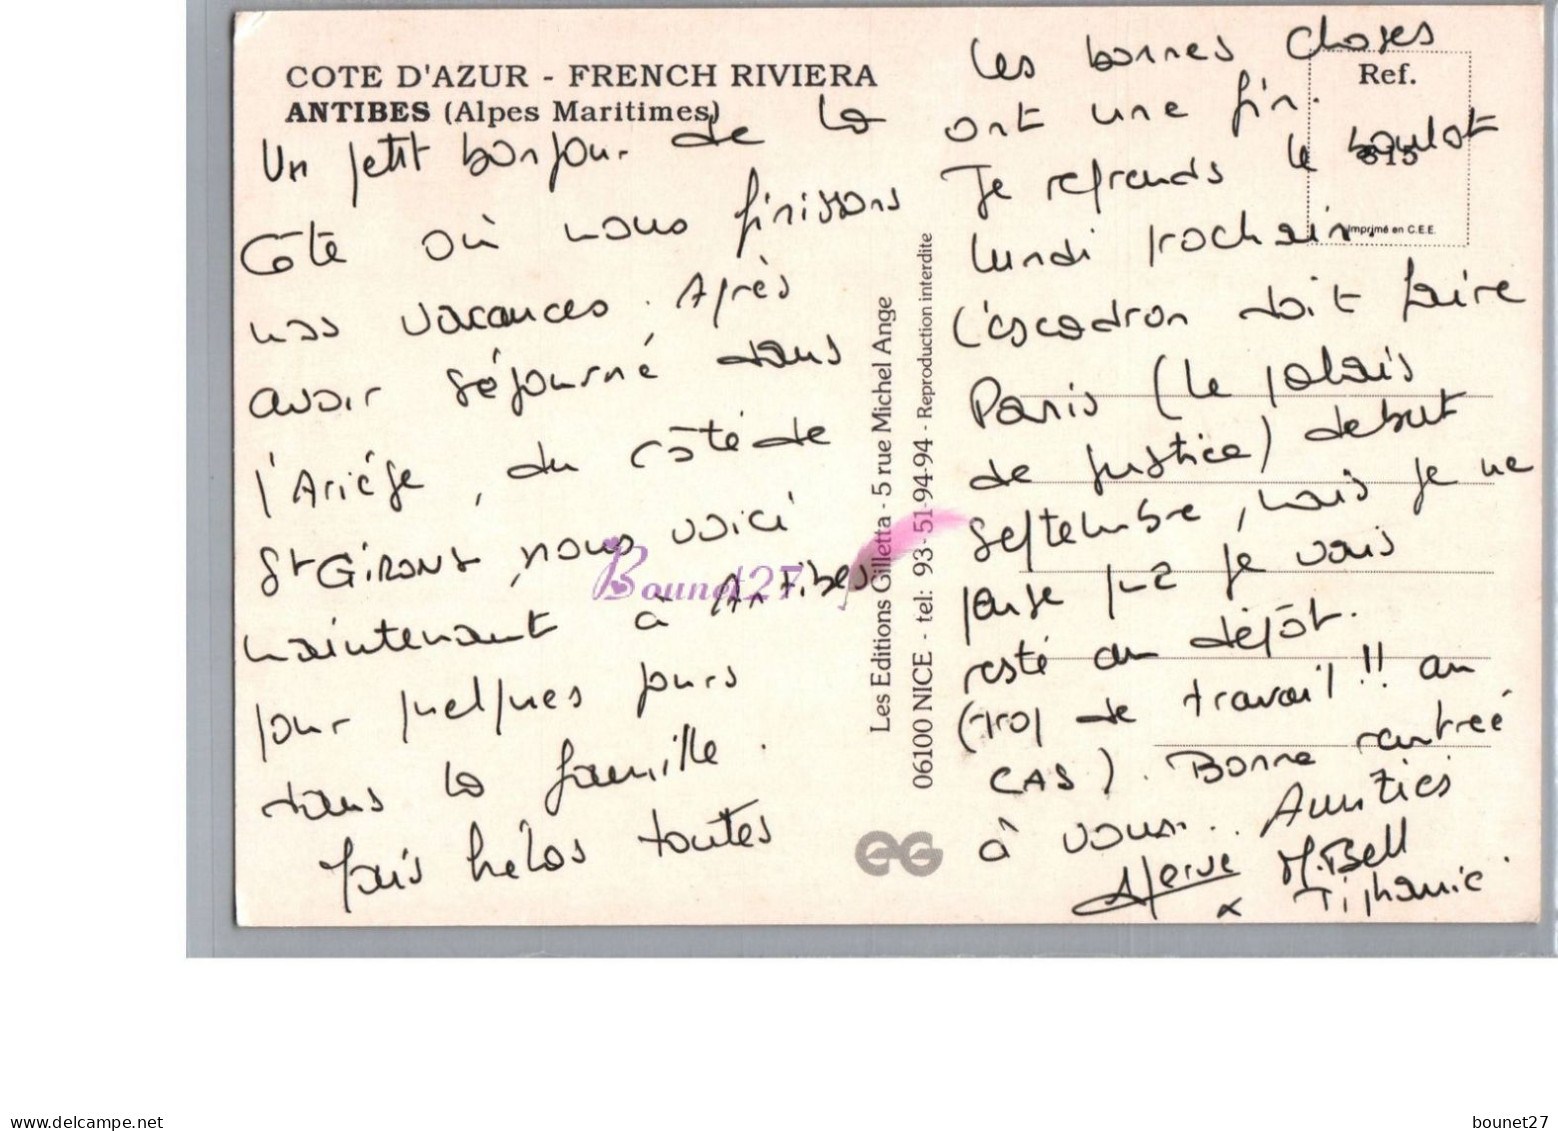 COTE D'AZUR - FRENCH RIVIERA
ANTIBES (Alpes Maritimes)
Un petit bonjour de la
Côte où nous finissons
nos vacances. Après
avoir séjourné dans
l'Ariége, du côté de
St GIRONS, nous voici
maintenant à Antibes
pour quelques jours
dans la famille.
Mais hélas toutes
Les Editions Gilletta - 5 rue Michel Ange
06100 NICE - tel: 93-51-94-94 - Reproduction interdite
EG
les bonnes choses
ont une fin.
Je reprends le boulot
lundi prochain.
L'escadron doit faire
Paris (le palais
de justice) debut
septembre, mais je ne
pense pas je vais
resté au dépôt.
(Trop de travail !! au
CAS). Bonne rentreé
à vous.. Amitiés
Herve M.Bell
x Tiphanie.
Ref.
815
Imprimé en C.E.E.
Bounet27
www.delcampe.net
bounet27